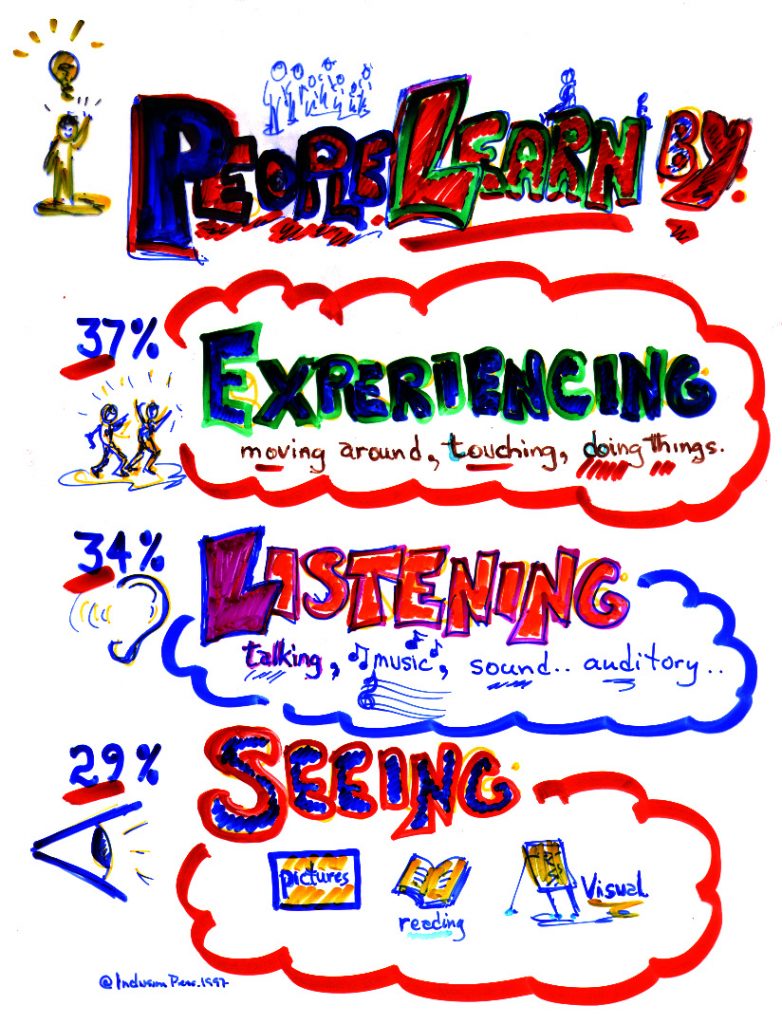 PEOPLE LEARN BY:
37%
EXPERIENCING
moving around, touching, doing things.
34%
LISTENING
talking, music, sound.. auditory..
29%
SEEING
pictures
reading
Visual
@ Inclusion Press. 1997